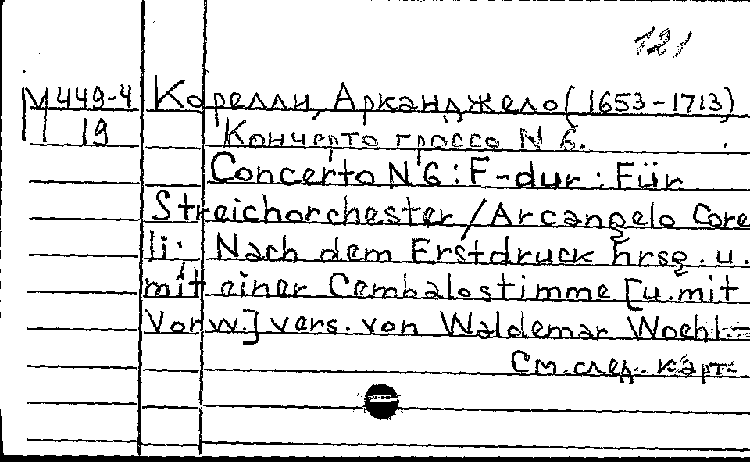 121
М 449-4 Корелли, Арканджело (1653-1713)
19 Кончерто гроссо N 6.
Concerto N 6 : F-dur : Für
Streichorchester / Arcangelo Core
li. Nach dem Erstdruck hrsg. u.
mit einer Cembalostimme [u. mit
Vorw.] vers. von Waldemar Woehl-
См. след. карт.